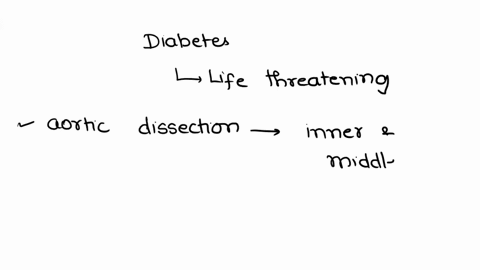 Diabetes
↳ Life threatening
✓ aortic dissection → inner &
middl